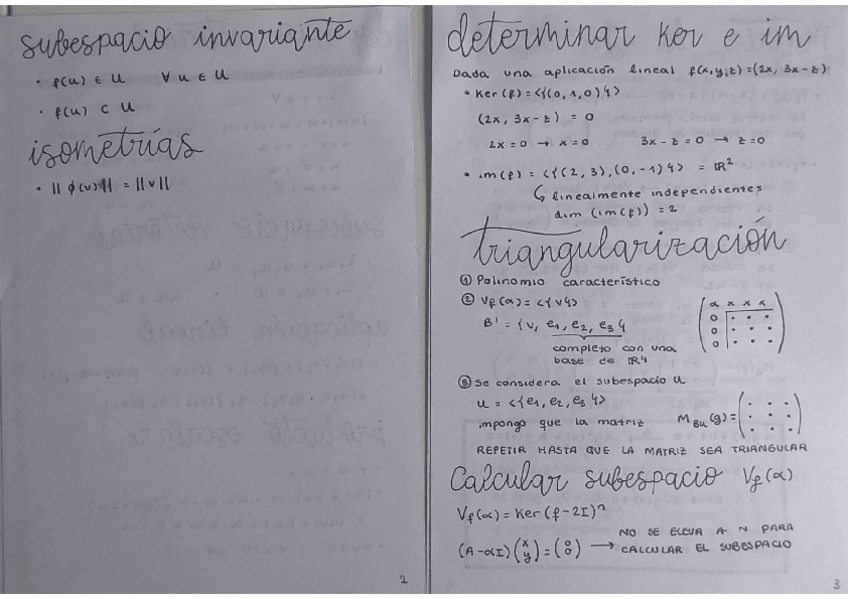 subespacio invariante
· f(u) ∈ U ∀ u ∈ U
· f(u) ⊂ U
isometrías
· || φ(v) || = ||v||
2
determinar Ker e im
Dada una aplicación lineal f(x,y,z)=(2x, 3x-z)
· Ker(f) = <{(0,1,0)}>
(2x, 3x-z) = 0
2x=0 → x=0 3x-z=0 → z=0
· im(f) = <{(2,3),(0,-1)}> = ℝ²
↳ linealmente independientes
dim (im(f)) = 2
triangularización
① Polinomio característico
② Vf(α) = <{v}>
B' = {v, e1, e2, e3}
completo con una
base de ℝ4
( α x x x
0 · · ·
0 · · ·
0 · · · )
③ Se considera el subespacio U
U = <{e1, e2, e3}>
impongo que la matriz M_BU(g) = ( · · ·
· · ·
· · · )
REPETIR HASTA QUE LA MATRIZ SEA TRIANGULAR
Calcular subespacio Vf(α)
Vf(α) = Ker (f-2I)ⁿ
(A-αI)(x y) = (0 0) → NO SE ELEVA A N PARA
CALCULAR EL SUBESPACIO
3